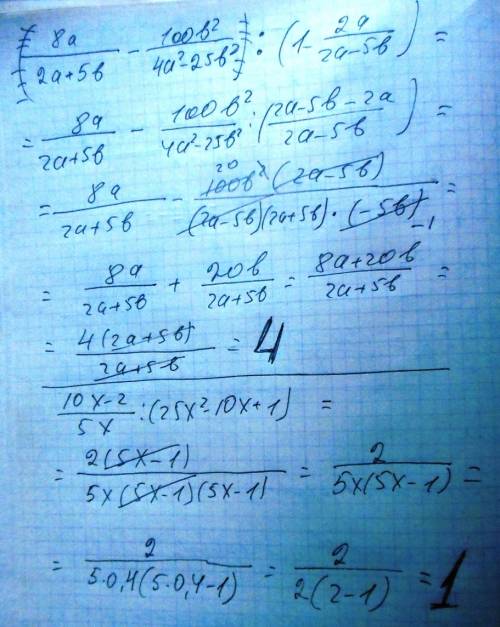 (8a/(2a+5b) - 100b²/(4a²-25b²)) : (1 - 2a/(2a-5b)) =
= 8a/(2a+5b) - 100b²/(4a²-25b²) : ((2a-5b-2a)/(2a-5b)) =
= 8a/(2a+5b) - 20 100b²(2a-5b)/((2a-5b)(2a+5b)·(-5b)) -1 =
= 8a/(2a+5b) + 20b/(2a+5b) = (8a+20b)/(2a+5b) =
= 4(2a+5b)/(2a+5b) = 4
(10x-2)/5x : (25x²-10x+1) =
= 2(5x-1)/(5x(5x-1)(5x-1)) = 2/(5x(5x-1)) =
= 2/(5·0,4(5·0,4-1)) = 2/(2(2-1)) = 1